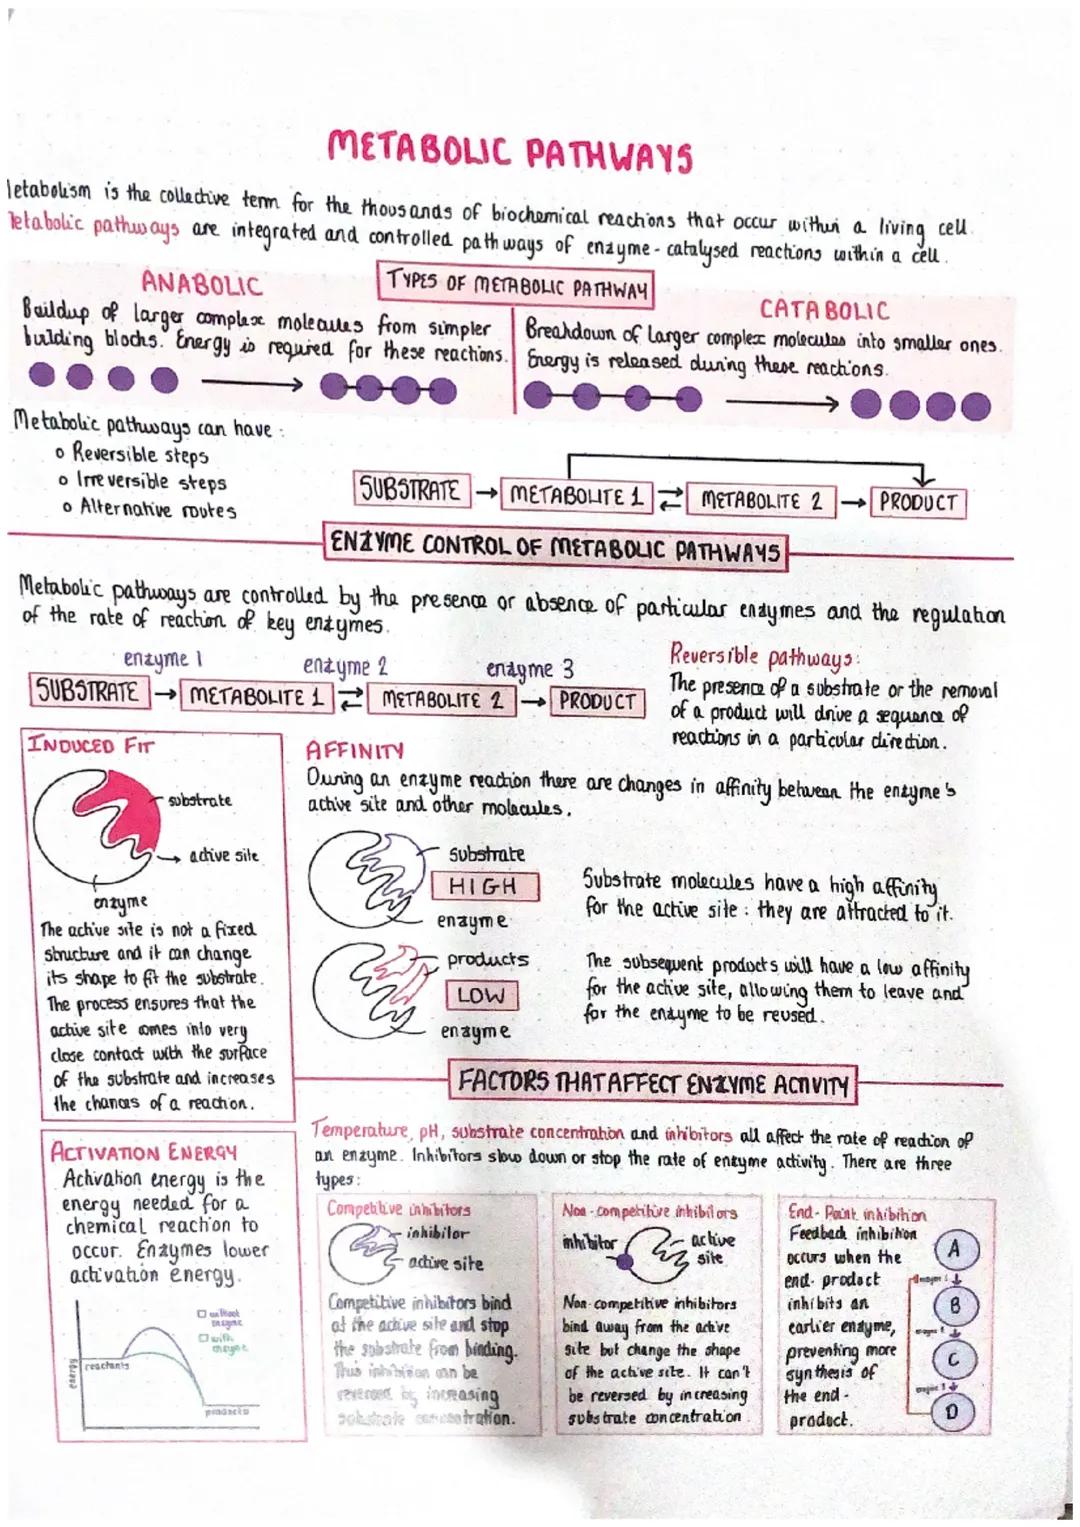 METABOLIC PATHWAYS
letabolism is the collective term for the thousands of biochemical reactions that occur within a living cell.
letabolic pathways are integrated and controlled pathways of enzyme-catalysed reactions within a cell.
TYPES OF METABOLIC PATHWAY
ANABOLIC
Buildup of larger complex molecules from simpler
bulding blocks. Energy is required for these reactions.
CATABOLIC
Breakdown of larger complex molecules into smaller ones.
Energy is released during these reactions.
Metabolic pathways can have:
o Reversible steps
o Irreversible steps
o Alternative routes
SUBSTRATE → METABOLITE 1 ⇄ METABOLITE 2 → PRODUCT
ENZYME CONTROL OF METABOLIC PATHWAYS
Metabolic pathways are controlled by the presence or absence of particular enzymes and the regulation
of the rate of reaction of key enzymes.
enzyme 1 enzyme 2 enzyme 3
SUBSTRATE → METABOLITE 1 ⇄ METABOLITE 2 → PRODUCT
Reversible pathways:
The presence of a substrate or the removal
of a product will drive a sequence of
reactions in a particular direction.
INDUCED FIT
substrate
active site
enzyme
The active site is not a fixed
structure and it can change
its shape to fit the substrate.
The process ensures that the
active site comes into very
close contact with the surface
of the substrate and increases
the chances of a reaction.
AFFINITY
During an enzyme reaction there are changes in affinity between the enzyme's
active site and other molecules.
substrate
HIGH
enzyme
Substrate molecules have a high affinity
for the active site: they are attracted to it.
products
LOW
enzyme
The subsequent products will have a low affinity
for the active site, allowing them to leave and
for the enzyme to be reused.
FACTORS THAT AFFECT ENZYME ACTIVITY
Temperature, pH, substrate concentration and inhibitors all affect the rate of reaction of
an enzyme. Inhibitors slow down or stop the rate of enzyme activity. There are three
types:
ACTIVATION ENERGY
Activation energy is the
energy needed for a
chemical reaction to
occur. Enzymes lower
activation energy.
without
enzyme
with
enzyme
energy
reactants
products
Competitive inhibitors
inhibitor
active site
Competitive inhibitors bind
at the active site and stop
the substrate from binding.
This inhibition can be
reversed by increasing
substrate concentration.
Non-competitive inhibitors
inhibitor
active
site
Non-competitive inhibitors
bind away from the active
site but change the shape
of the active site. It can't
be reversed by increasing
substrate concentration
End-Point inhibition
Feedback inhibition
occurs when the
end-product
inhibits an
earlier enzyme,
preventing more
synthesis of
the end-
product.
A
enzyme 1
B
C
D